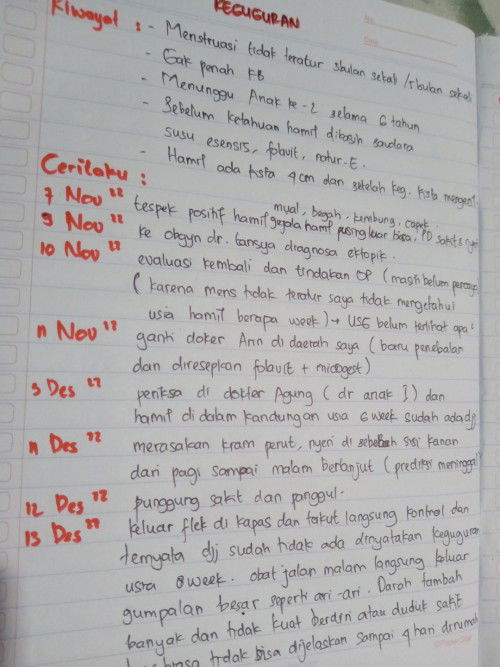 KEGUGURAN
Riwayat : - Menstruasi tidak teratur 3bulan sekali / 5bulan sekali
- Gak penah KB
- Menunggu Anak ke-2 selama 6 tahun
- Sebelum ketahuan hamil dikasih saudara
susu esensis, folavit, natur-E.
- Hamil ada kista 4cm dan setelah keg. kista mengecil
Ceritaku :
7 Nov 22 tespek positif hamil
mual, begah, kembung, capek,
gejala hamil pusing luar biasa, PD sakit &
9 Nov 22 ke obgyn dr. tansya diagnosa ektopik.
10 Nov 22 evaluasi kembali dan tindakan OP (masih belum percaya
( karena mens tidak teratur saya tidak mengetahui
usia hamil berapa week) → USG belum terlihat apa²
11 Nov 22 ganti dokter Ann di daerah saya ( baru penebalan
dan diresepkan folavit + microgest)
3 Des 22 periksa di dokter Agung ( dr anak I ) dan
hamil di dalam kandungan usia 6 week sudah ada djj
11 Des 22 merasakan kram perut, nyeri di sebelah sisi kanan
dari pagi sampai malam berlanjut ( prediksi meninggal
12 Des 22 punggung sakit dan panggul.
13 Des 22 keluar flek di kapas dan takut langsung kontrol dan
ternyata djj sudah tidak ada dinyatakan keguguran
usia 8 week. obat jalan malam langsung keluar
gumpalan besar seperti ari-ari. Darah tambah
banyak dan tidak kuat berdiri atau duduk sakit
tidak bisa dijelaskan sampai 4 hari dirumah